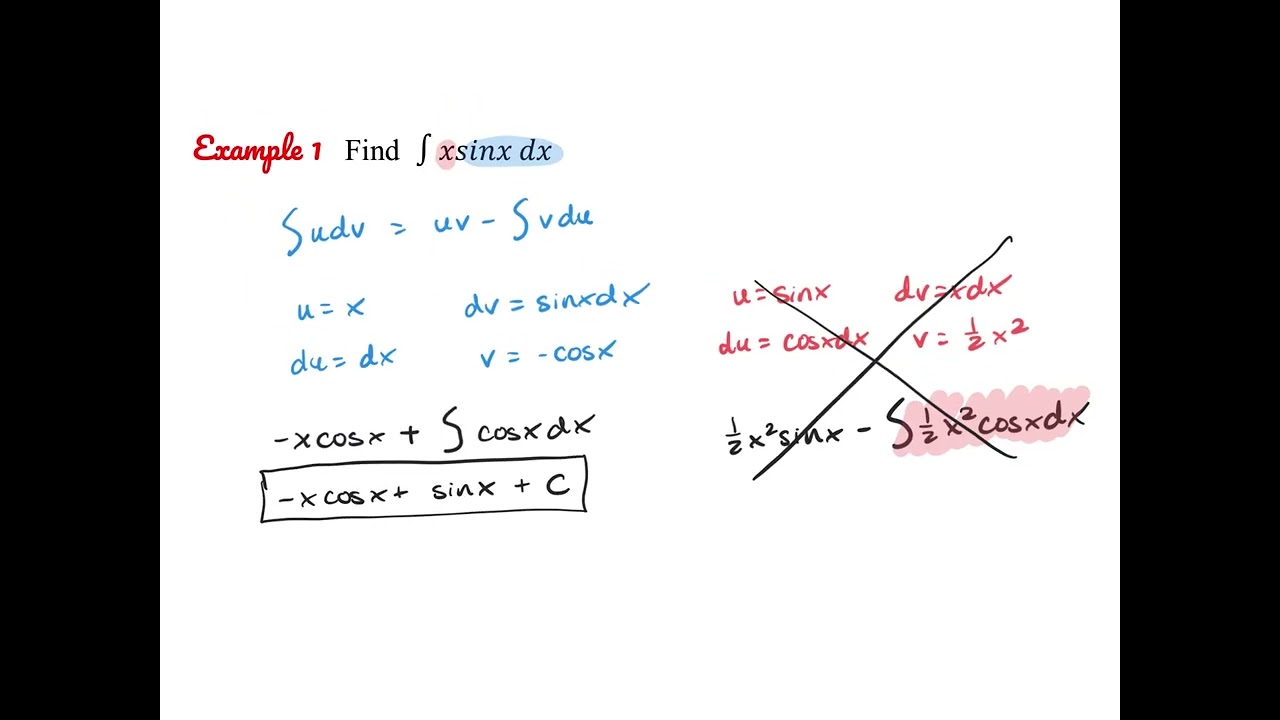 Example 1 Find ∫ xsinx dx
∫udv = uv - ∫vdu
u = x dv = sinxdx
du = dx v = -cosx
-xcosx + ∫cosxdx
-xcosx + sinx + C
u = sinx dv = xdx
du = cosxdx v = ½x²
½x²sinx - ∫½x²cosxdx